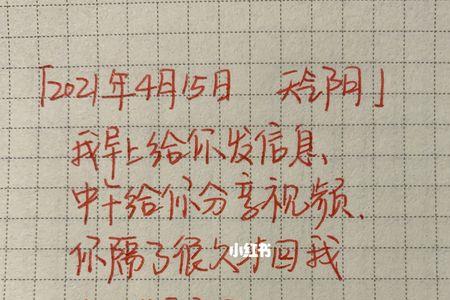 「2021年4月15日 天气阴」
我早上给你发信息、
中午给你分享视频、
你隔了很久才回我
小红书